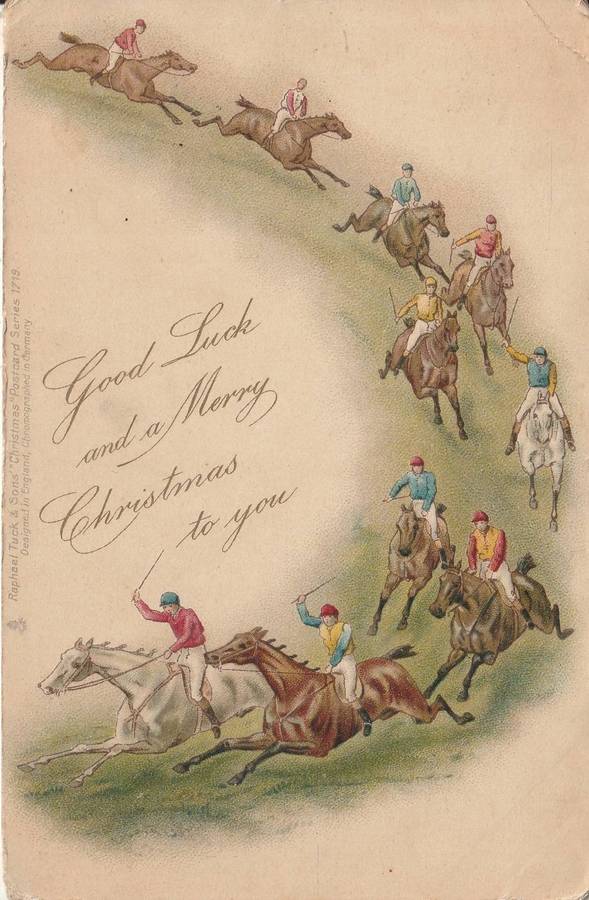 Good Luck
and a Merry
Christmas
to you
Raphael Tuck & Sons' "Christmas" Postcard Series 1719.
Designed in England, Chromographed in Germany